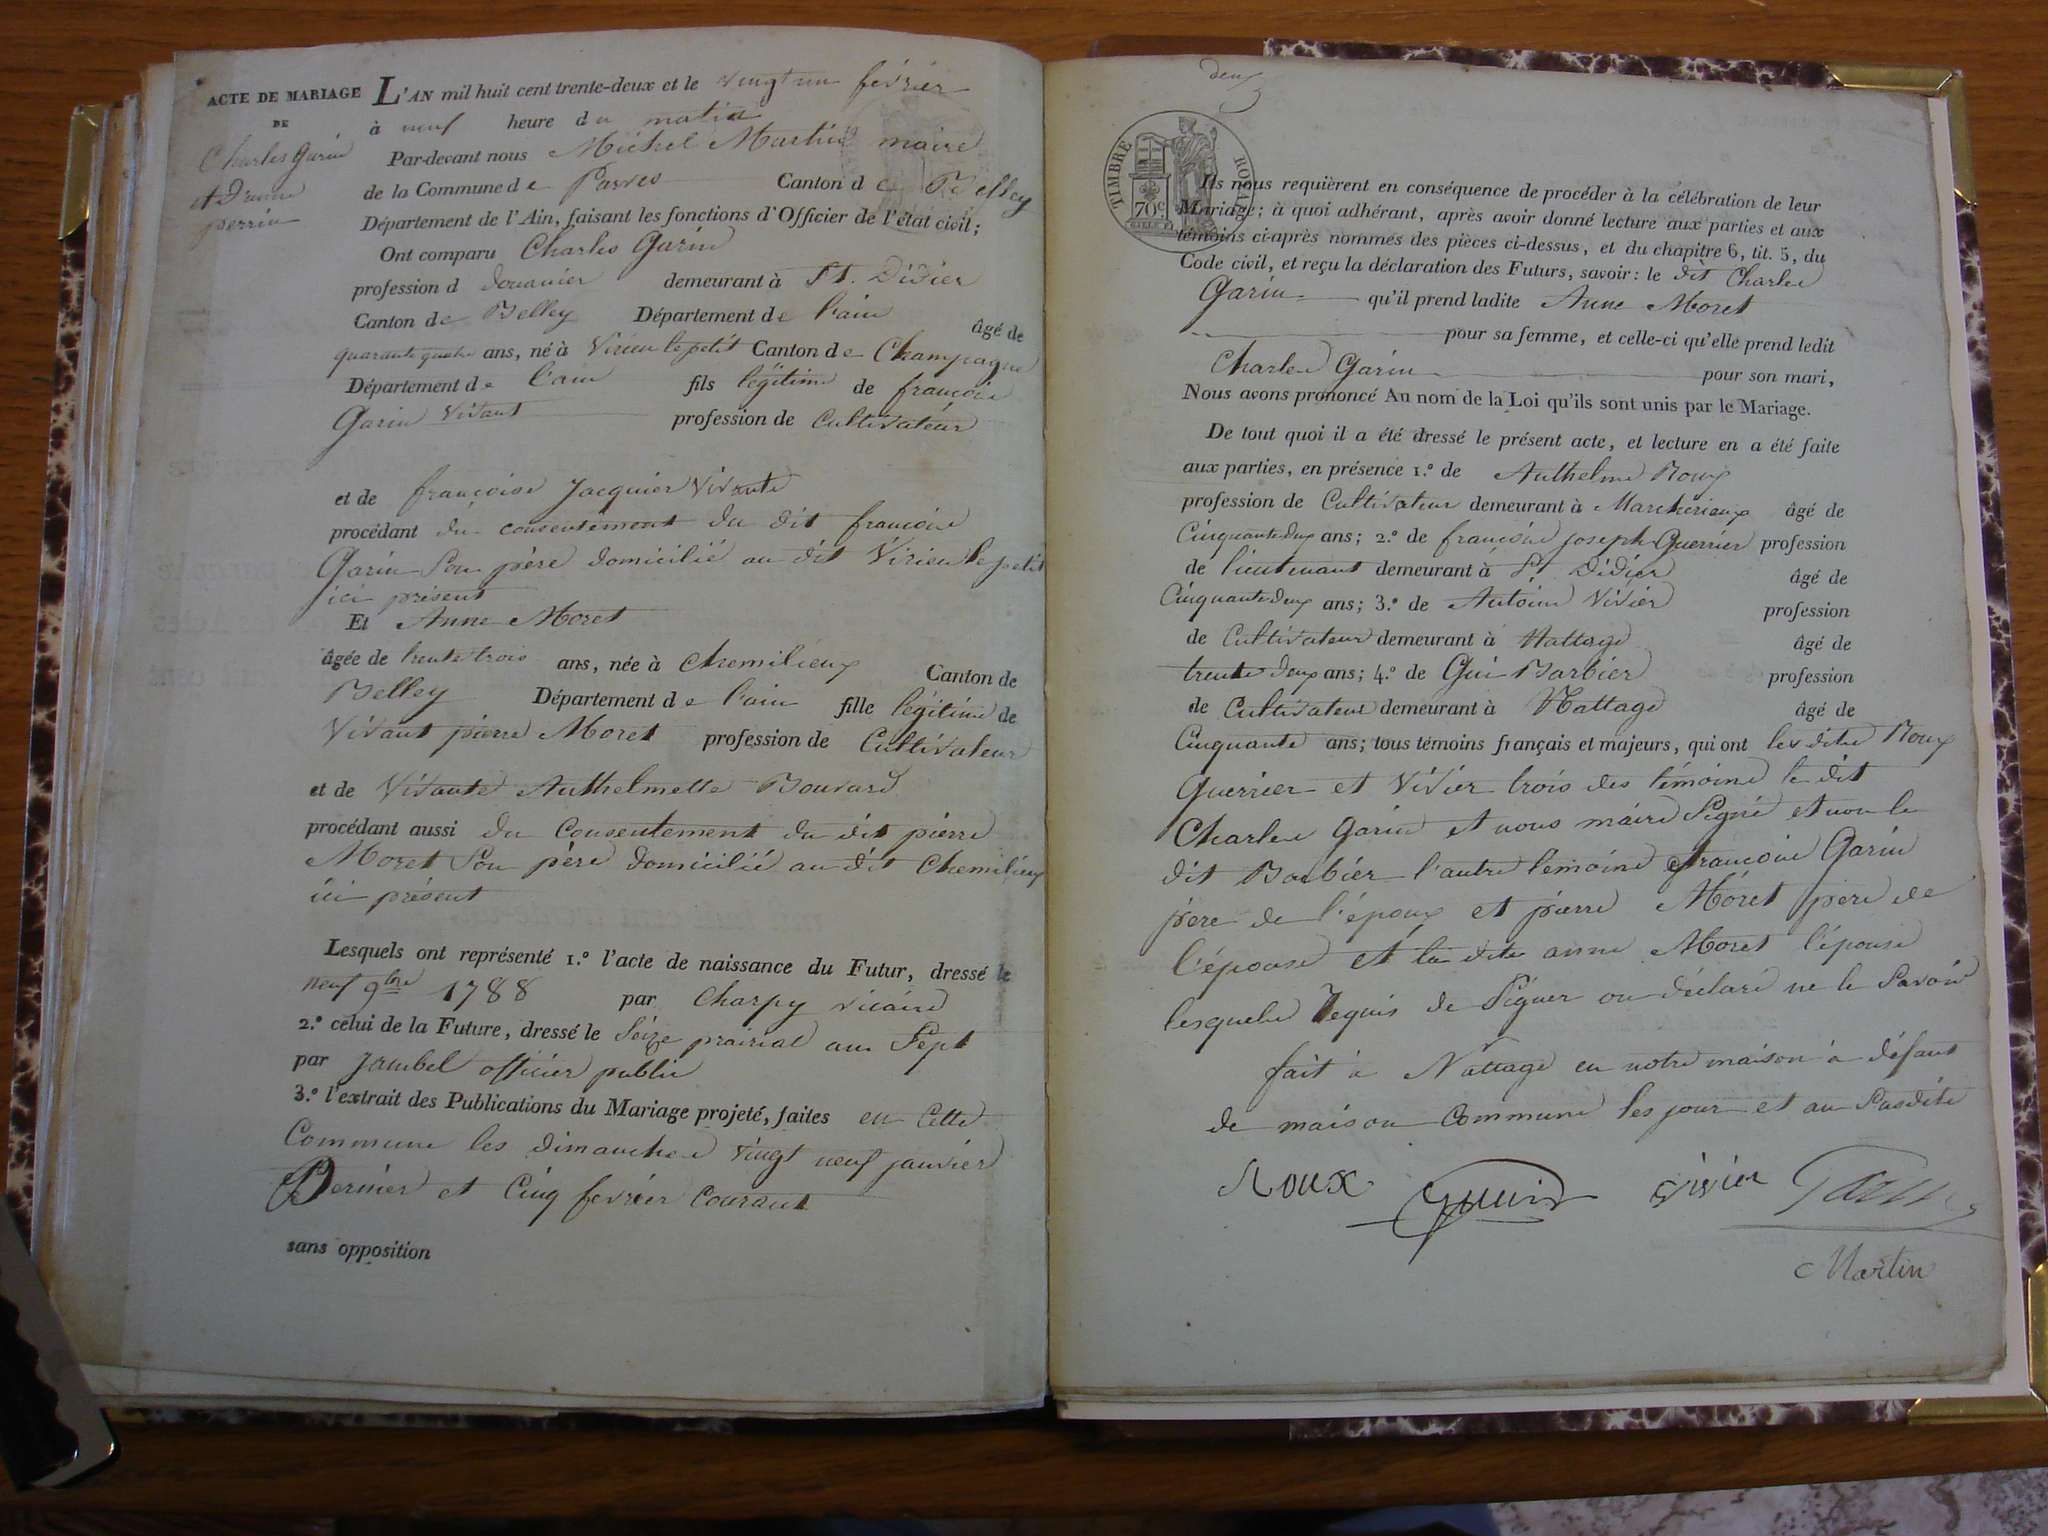 ACTE DE MARIAGE
DE
Charles Garin
et
perrin
L'AN mil huit cent trente-deux et le vingt un février
à neuf heure du matin
Par-devant nous Michel Martin maire
de la Commune de Parves Canton de Belley
Département de l'Ain, faisant les fonctions d'Officier de l'état civil;
Ont comparu Charles Garin
profession d douanier demeurant à St. Didier
Canton de Belley Département de l'ain âgé de
quarante quatre ans, né à Virieu le petit Canton de Champagne
Département de l'ain fils légitime de francoise
Garin vivant profession de Cultivateur
et de françoise Jacquier Vivante
procédant du consentement du dit francoise
Garin Son père domicilié au dit Virieu le petit
ici présent
Et Anne Moret
âgée de trente trois ans, née à Chemilieux Canton de
Belley Département de l'ain fille légitime de
Vivant pierre Moret profession de Cultivateur
et de Vivante Authelmette Bouvard
procédant aussi du Consentement du dit pierre
Moret Son père domicilié au dit Chemilieux
ici présent
Lesquels ont représenté 1.° l'acte de naissance du Futur, dressé le
neuf 9bre 1788 par Charpy vicaire
2.° celui de la Future, dressé le Seize prairial an Sept
par Jambel officier public
3.° l'extrait des Publications du Mariage projeté, faites en Cette
Commune les dimanches vingt neuf janvier
Dernier et Cinq fevrier Courant
sans opposition
deux
TIMBRE ROYAL
70c
Ils nous requièrent en conséquence de procéder à la célébration de leur
Mariage; à quoi adhérant, après avoir donné lecture aux parties et aux
témoins ci-après nommés des pièces ci-dessus, et du chapitre 6, tit. 5, du
Code civil, et reçu la déclaration des Futurs, savoir: le dit Charles
Garin qu'il prend ladite Anne Moret
pour sa femme, et celle-ci qu'elle prend ledit
Charles Garin pour son mari,
Nous avons prononcé Au nom de la Loi qu'ils sont unis par le Mariage.
De tout quoi il a été dressé le présent acte, et lecture en a été faite
aux parties, en présence 1.° de Authelme Roux
profession de Cultivateur demeurant à Marcherieux âgé de
Cinquante deux ans; 2.° de francoise joseph Guerrier profession
de lieutenant demeurant à St Didier âgé de
Cinquante deux ans; 3.° de Antoine Vivier profession
de Cultivateur demeurant à Nattage âgé de
trente deux ans; 4.° de Gui Barbier profession
de Cultivateur demeurant à Nattage âgé de
Cinquante ans; tous témoins français et majeurs, qui ont les dits Roux
Guerrier et Vivier trois des témoins le dit
Charles Garin et nous maire Signé et non le
dit Barbier l'autre témoins francoise Garin
père de l'époux et pierre Moret père de
l'épouse et la dite anne Moret l'épouse
lesquels requis de Signer on déclaré ne le Savoir
fait à Nattage en notre maison à défaut
de maison Commune les jour et an Susdits
Roux Guerrier vivier Garin
Martin